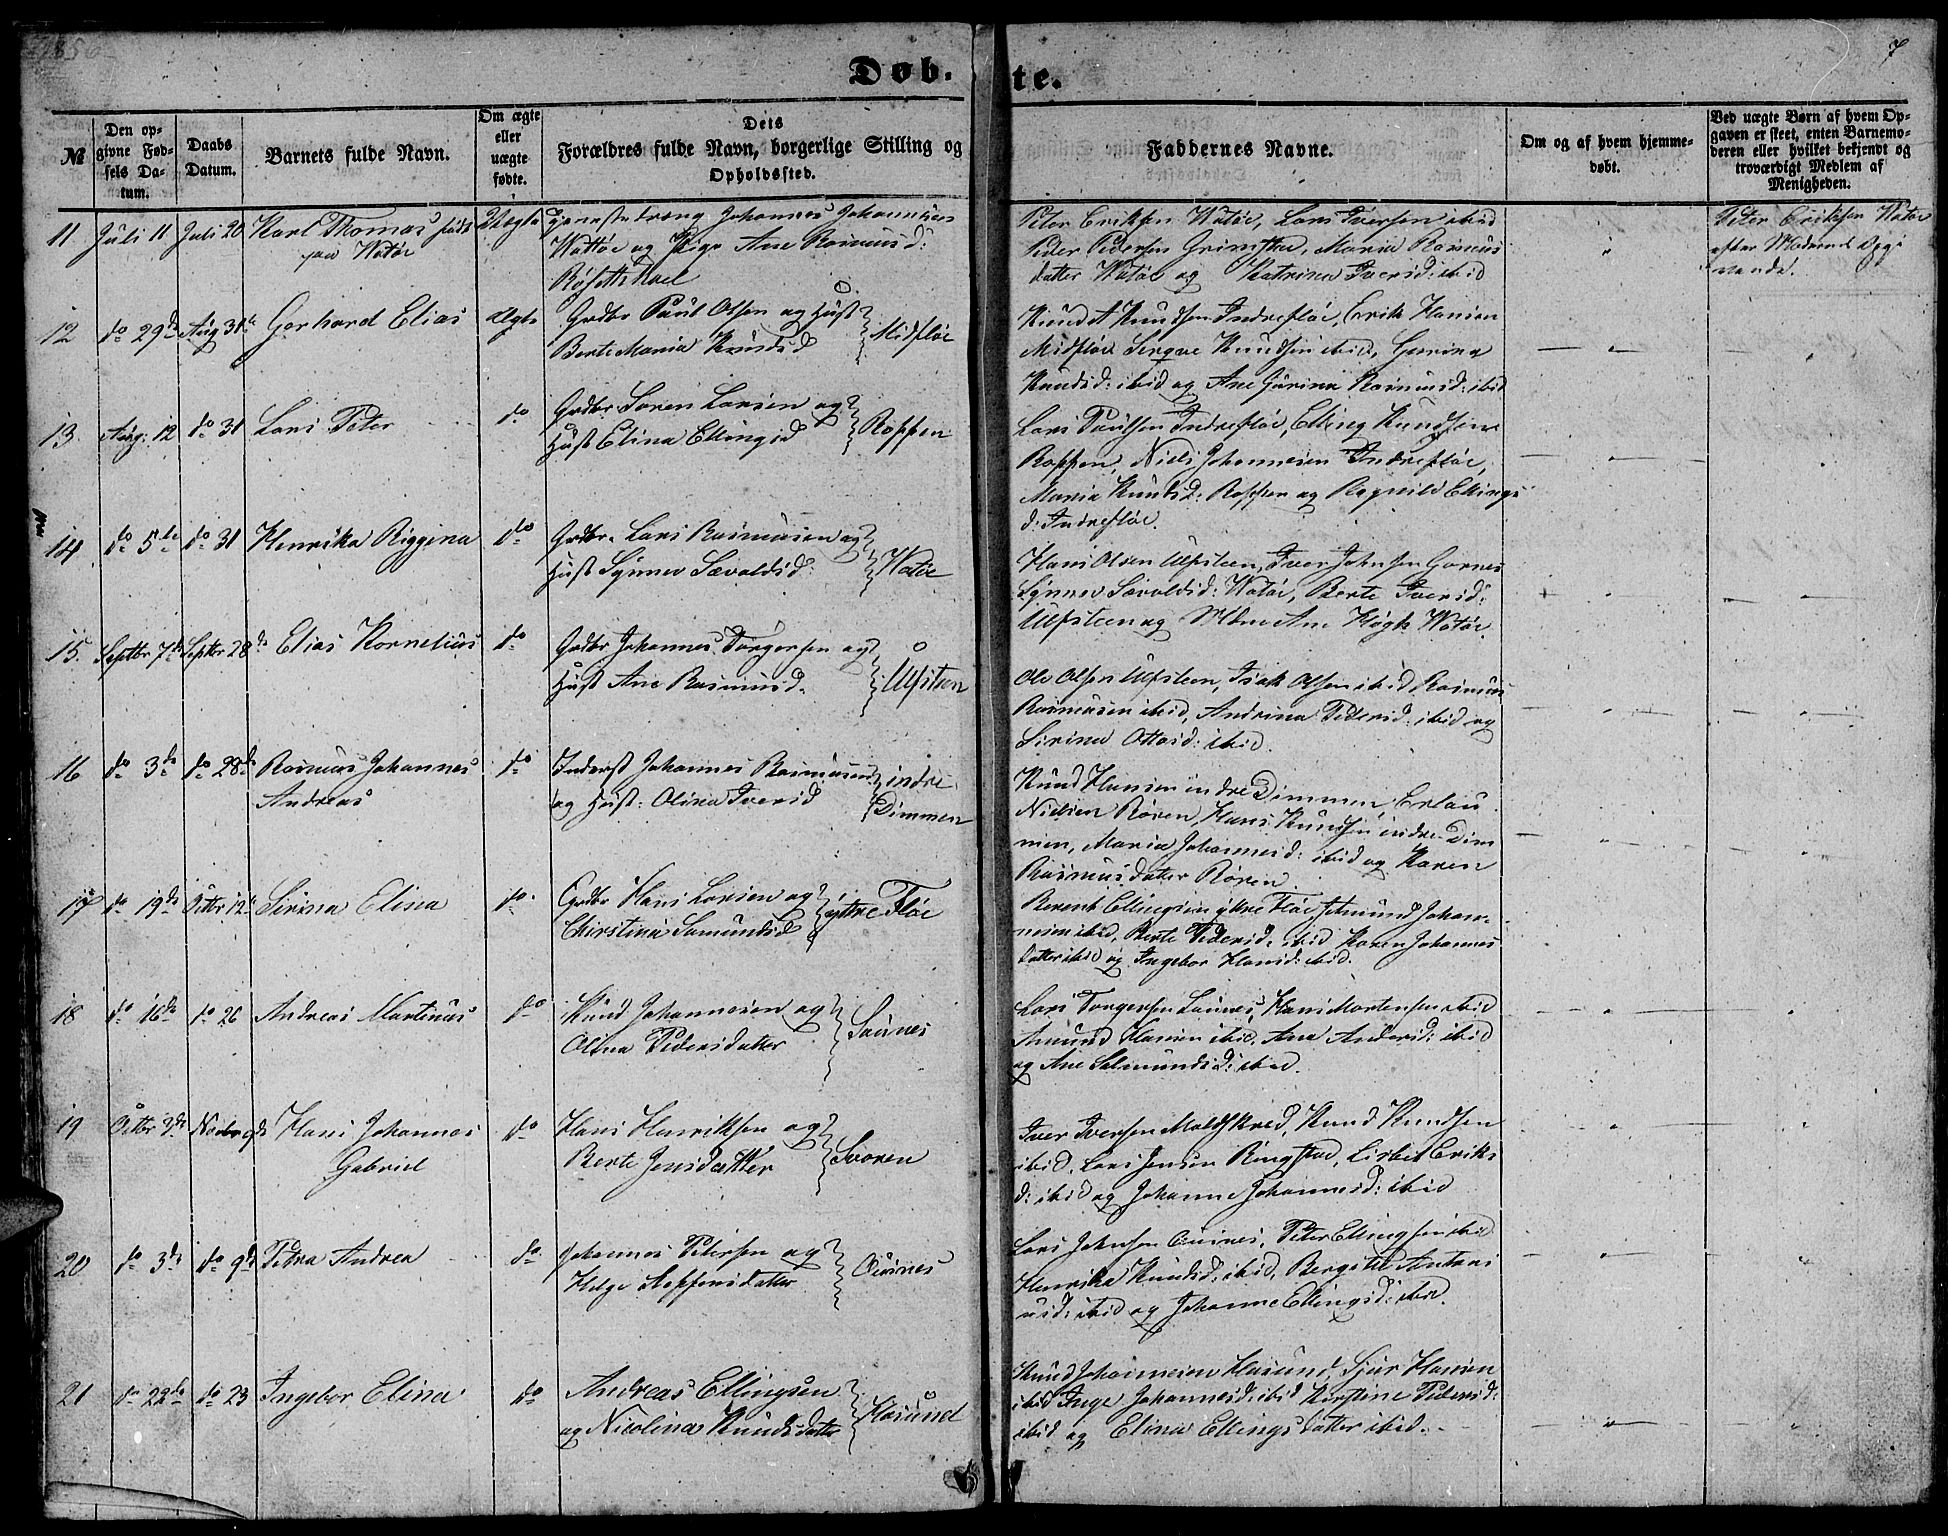 1856
7
Døb-
te.
№
Den op-
givne Fød-
sels Da-
tum.
Daabs
Datum.
Barnets fulde Navn.
Om ægte
eller
uægte
fødte.
Dets
Forældres fulde Navn, borgerlige Stilling og
Opholdssted.
Faddernes Navne.
Om og af hvem hjemme-
døbt.
Ved uægte Børn af hvem Op-
gaven er skeet, enten Barnemo-
deren eller hvilket bekjendt og
troværdigt Medlem af
Menigheden.
11. Juli 11 Juli 20 Karl Thomas født Uægte Tjenestedreng Johannes Johannesen
paa Watøe
Wattøe og Pige Ane Rasmusd:
Peter Eriksen Watøe, Lars Iversen ibid
Peder Pedersen Grimstad, Maria Rasmus
datter Watøe og Katrina Iversd: ibid
Peter Eriksen Watøe
efter Moderens Opgi
vende.
12 do 29de Aug 31te Gerhard Elias Ægte Grdbr Paul Olsen og Hust
Berte Maria Knudsd
Midfløe
Knud A Knudsen Indrefløe, Erik Hansen
Midfløe Knudsen ibid,
Knudsd: ibid og Ane Gurina Rasmusd: ibid
13. Aug: 12 do 31 Lars Peter do Grdbr Søren Larsen og
Hust Elina Ellingsd
Roppen
Lars Paulsen Indrefløe, Elling Knudsen
Roppen, Niels Johannesen Indrefløe,
Maria Knudsd: Roppen og Ragnild Ellings
d: Indrefløe.
14 do 5te do 31 Henrika Riggina do Grdbr. Lars Rasmusen og
Hust Synnev Sævaldsd:
Watøe
Hans Olsen Ulfsteen, Iver Johnsen Garnes
Synnev Sævaldsd: Watøe, Berte Iversd:
Ulfsteen og Mdme Ane Høgh Watøe.
15. Septbr. 7de Septbr 28de Elias Kornelius do Grdbr Johannes Torgersen og
Hust Ane Rasmusd.
Ulfsteen
Ole Olsen Ulfsteen, Isak Olsen ibid Rasmus
Rasmusen ibid, Andrina Pedersd: ibid og
Sirina Ottosd: ibid.
16 do 3de do 28de Rasmus Johannes do Inderst Johannes Rasmusen
Andreas
og Hust: Olina Iversd
indre
Dimmen
Knud Hansen indre Dimmen, Erlan
Nielsen Røren, Hans Knudsen indre Dim
men, Maria Johannesd: ibid og Karen
Rasmusdatter Røren.
17 do 19de Octbr 12te Sirina Elina do. Grdbr Hans Larsen og
Christina Samundsd
yttre Fløe
Berent Ellingsen yttre Fløe Johan-
nesen ibid, Berte Pedersd: ibid Karen Johannes
datter ibid og Ingebor Hansd: ibid.
18 do 16de do 26 Andreas Martinus do Knud Johannesen og
Olina Pedersdatter
Saunes
Lars Torgersen Saunes, Hans Mortensen ibid
Amund Hansen ibid, Ane Andersd: ibid
og Ane Salmundsd: ibid.
19 Octbr 3de Novbr 9de Hans Johannes do Hans Henriksen og
Gabriel
Berte Jensdatter
Svoren
Iver Iversen Maldskred, Knud Knudsen
ibid, Lars Jensen Ringstad, Lisbet Eriks
d: ibid og Johanne Johannesd: ibid
20 do 3de do 9de Petra Andrea do Johannes Petersen og
Helge Steffensdatter
Osvines
Lars Johnsen Osvines, Peter Ellingsen ibid
Henrika Knudsd: ibid, Bergitte Antoni
usd: ibid og Johanne Ellingsd: ibid.
21 do 22de do 23 Ingebor Elina do Andreas Ellingsen
og Nicolina Knudsdatter
Hasund
Knud Johannesen Hasund, Sjur Hansen
ibid Inge Johannesd: ibid Kirstine Pedersd:
ibid og Elina Ellingsdatter ibid.